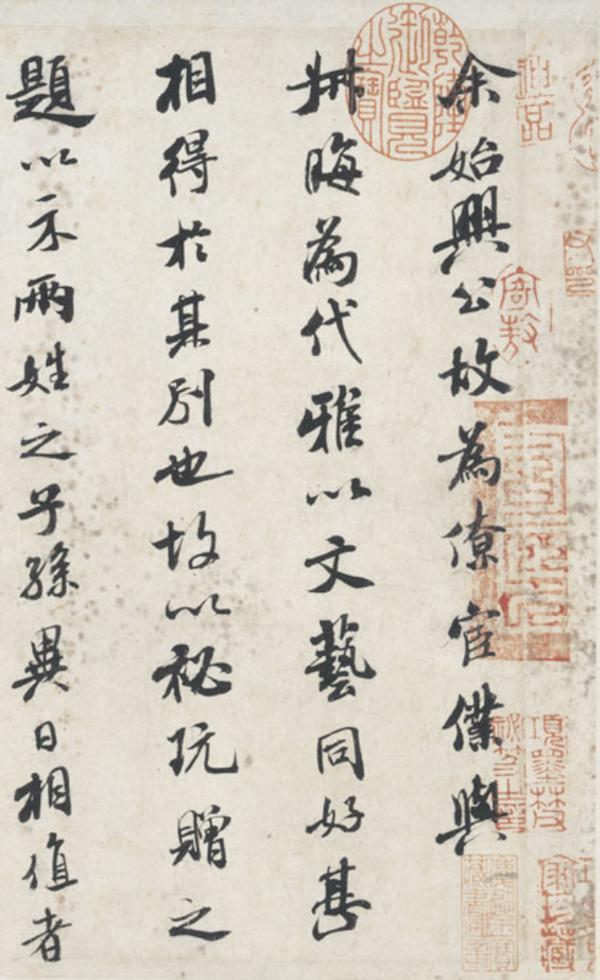 余始興公故為僚宦僕與
叔晦為代雅以文藝同好甚
相得於其別也故以秘玩贈之
題以示兩姓之子孫異日相值者
乾隆御覽之寶